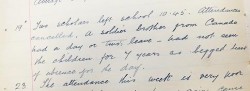 19th Two scholars left school 10.45. Attendances
cancelled. A soldier brother from Canada
had a day or two leave - had not seen
the children for 7 years as begged leave
of absence for the day.
23 The attendance this week is very poor